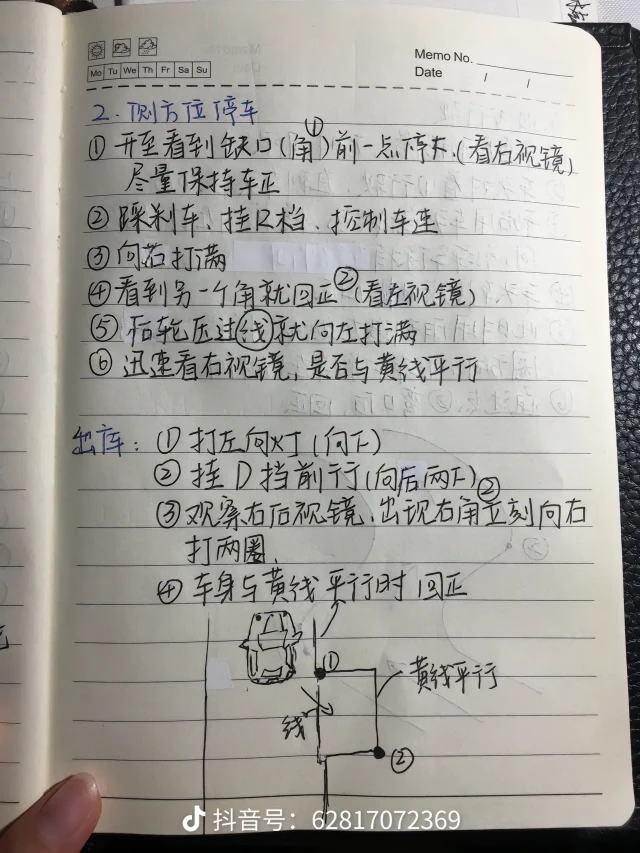 Memo No.
Date / /
Mo Tu We Th Fr Sa Su
2. 侧方位停车
① 开至看到缺口(角①)前一点停下.(看右视镜)
尽量保持车正
② 踩刹车、挂R档、控制车速
③ 向右打满
④ 看到另一个角就回正②(看左视镜).
⑤ 后轮压过线就向左打满
⑥ 迅速看右视镜,是否与黄线平行
出库: ① 打左向灯(向下)
② 挂D挡前行(向后两下)
③ 观察右后视镜,出现右角②立刻向右
打两圈.
④ 车身与黄线平行时 回正
①
黄线平行
线
②
抖音号: 62817072369